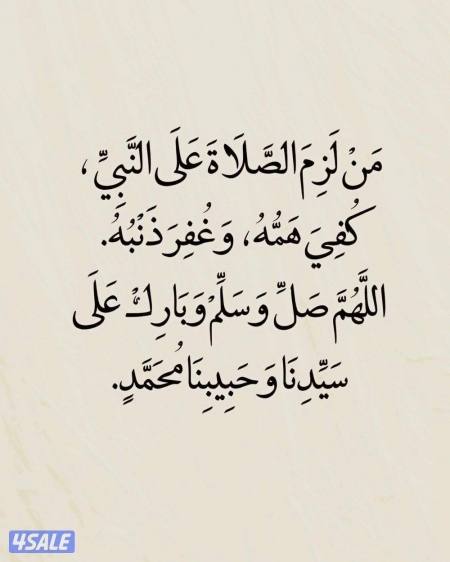 مَنْ لَزِمَ الصَّلَاةَ عَلَى النَّبِيِّ،
كُفِيَ هَمُّهُ، وَغُفِرَ ذَنْبُهُ.
اللَّهُمَّ صَلِّ وَسَلِّمْ وَبَارِكْ عَلَى
سَيِّدِنَا وَحَبِيبِنَا مُحَمَّدٍ.
4SALE